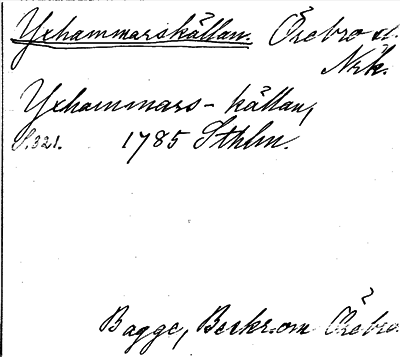 Yxhammarskällan. Örebro st.
Nrk.
Yxhammars-källan,
S.321. 1785 Sthlm.
Bagge, Beskr. om Örebro.